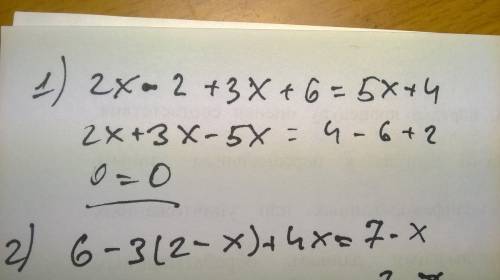 1) 2x - 2 + 3x + 6 = 5x + 4
2x + 3x - 5x = 4 - 6 + 2
0 = 0
2) 6 - 3(2 - x) + 4x = 7 - x